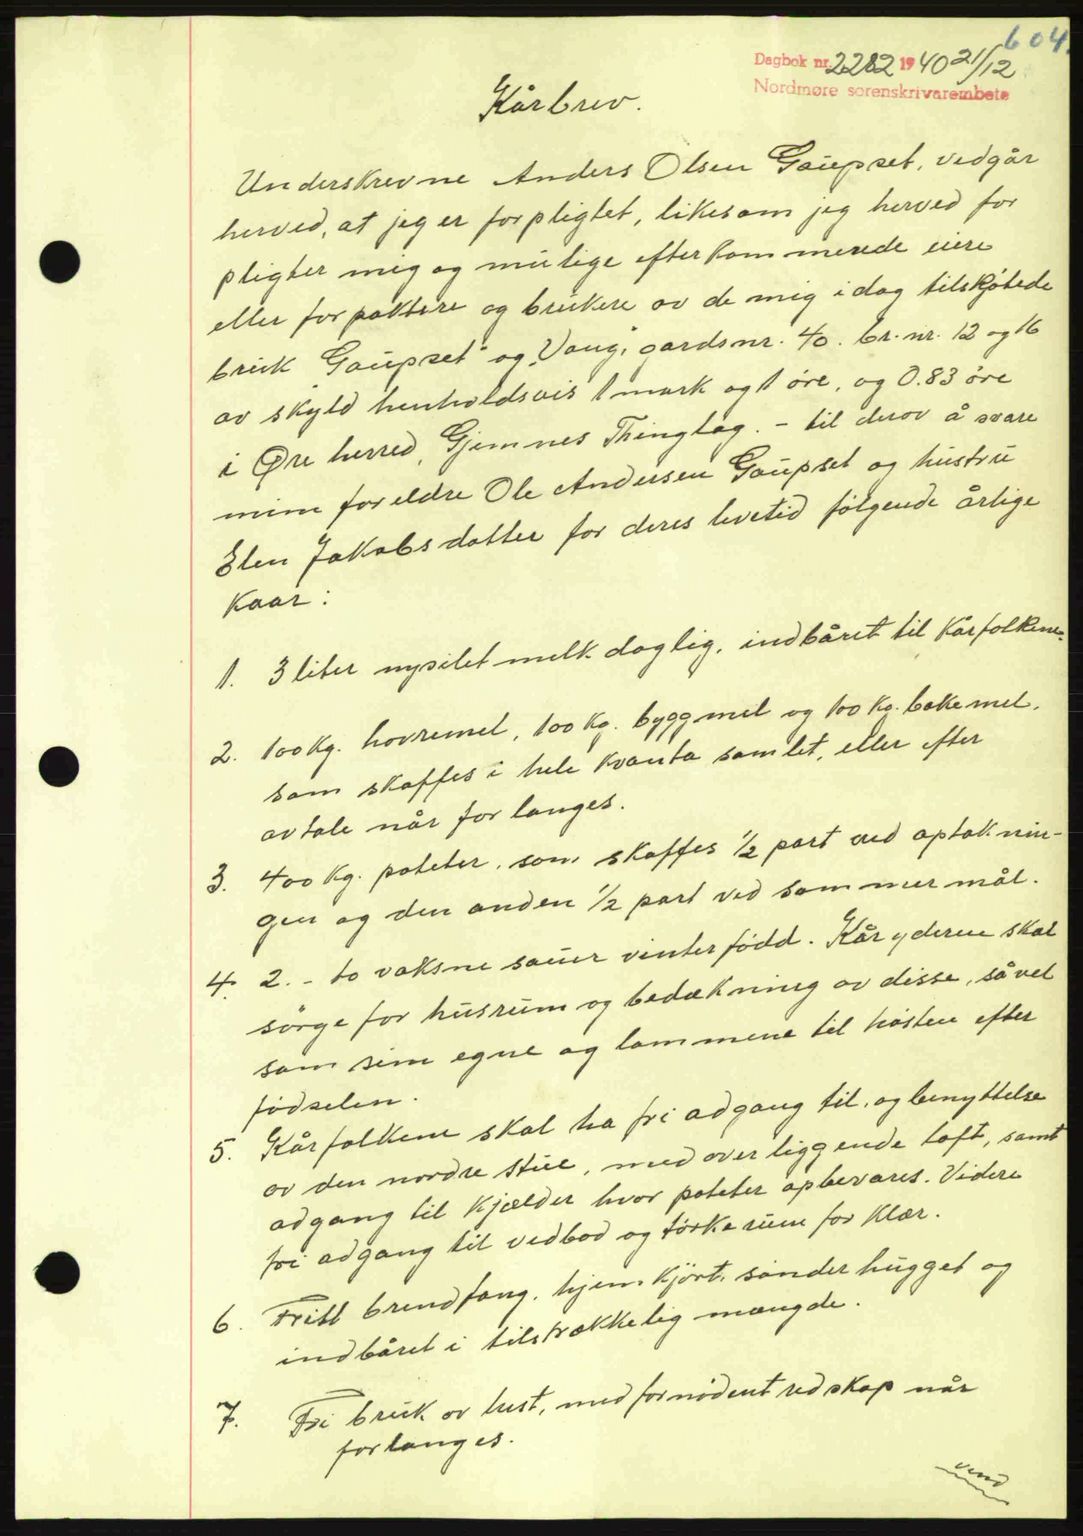 604.
Dagbok nr. 2282 1940 21/12
Nordmøre sorenskrivarembete
Kårbrev.
Underskrevne Anders Olsen Gaupset, vedgår
herved, at jeg er forpligtet, likesom jeg herved for
pligter mig og mulige efterkommerede eiere
eller forpaktere og brukere av de mig idag tilskjøtede
bruk "Gaupset" og "Vang", gardsnr. 40. br.nr. 12 og 16
av skyld henholdsvis 1 mark og 1 øre, og 0.83 øre
i Øre herred, Gjemnes Thinglag. - til derav å svare
mine foreldre Ole Andersen Gaupset og hustru
Elen Jakobsdatter for deres levetid følgende årlige
kaar:
1. 3 liter nysilet melk daglig, indbåret til kårfolkene.
2. 100 kg. havremel, 100 kg. byggmel og 100 kg. bakemel,
som skaffes i hele kvanta samlet, eller efter
avtale når forlanges.
3. 400 kg. poteter, som skaffes 1/2 part ved optaknin-
gen og den anden 1/2 part ved sommermål.
4. 2. - to voksne sauer vinterfødd. Kåryderen skal
sørge for husrum og bedækning av disse, såvel
som sine egne og lammene til høsten efter
fødselen.
5. Kårfolkene skal ha fri adgang til, og benyttelse
av den nordre stue, med overliggende loft, samt
adgang til kjælder hvor poteter opbevares. Videre
fri adgang til vedbod og tørkerum for klær.
6. Fritt brendfang, hjemkjørt, sønderhugget og
indbåret i tilstrækkelig mængde.
7. Fri bruk av hest, med fornødent redskap når
forlanges.
vend